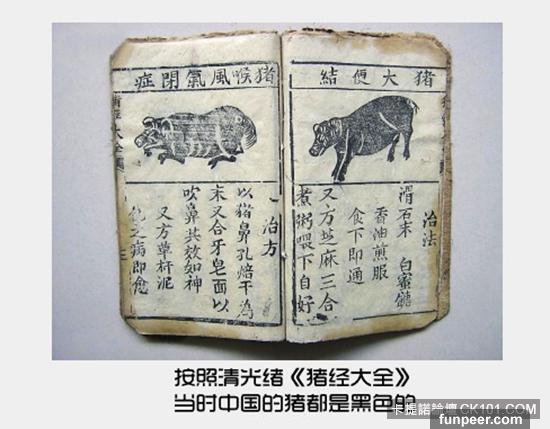 猪大便結
治法
滑石末 白蜜
香油煎服
食下即通
又方芝麻三合
煮粥喂下自好
猪喉風氣閉症
一治方
以猪鼻孔焙干為
末又合牙皂面以
吹鼻其效如神
又方草杆泥
之病即愈
經大全
三
按照清光绪《猪经大全》
当时中国的猪都是黑色的
卡提諾論壇 CK101.COM
funpeer.com